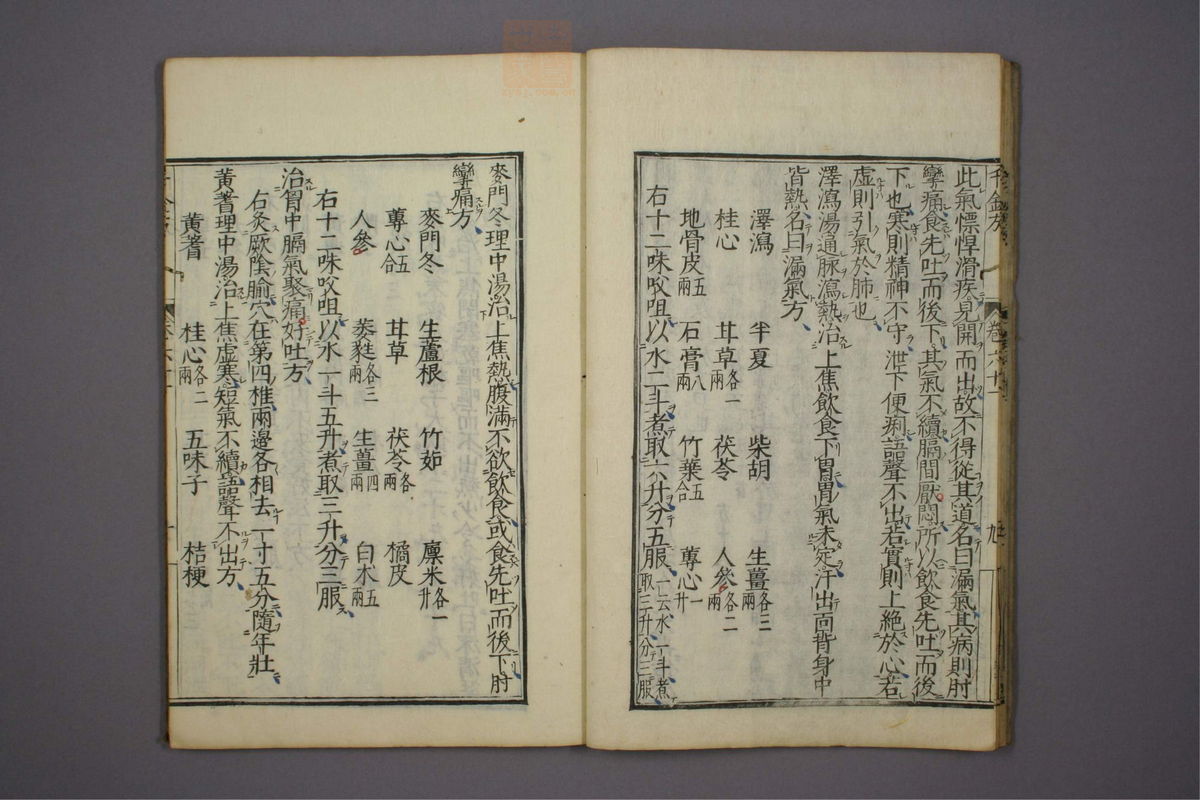 千金方 卷六十一
此氣慓悍滑疾見開而出故不得從其道名曰漏氣其病則肘
攣痛食先吐而後下其氣不續膈間厭悶所以飲食先吐而後
下也寒則精神不守泄下便痢語聲不出若實則上絶於心若
虛則引氣於肺也
澤瀉湯通脉瀉熱治上焦飲食下胃胃氣未定汗出面背身中
皆熱名曰漏氣方
澤瀉 半夏 柴胡 生薑各三兩
桂心 甘草各一兩 茯苓 人參各二兩
地骨皮五兩 石膏八兩 竹葉五合 蓴心一升
右十二味㕮咀以水二斗煮取六升分五服一云水一斗煮取三升分三服
麥門冬理中湯治上焦熱腹滿不欲飲食或食先吐而後下肘
攣痛方
麥門冬 生蘆根 竹茹 廩米各一升
蓴心五合 甘草 茯苓各二兩 橘皮
人參 葳蕤各三兩 生薑四兩 白朮五兩
右十二味㕮咀以水一斗五升煮取三升分三服
治胷中膈氣聚痛好吐方
右灸厥陰腧穴在第四椎兩邊各相去一寸五分隨年壯
黃蓍理中湯治上焦虛寒短氣不續語聲不出方
黃蓍 桂心各二兩 五味子 桔梗